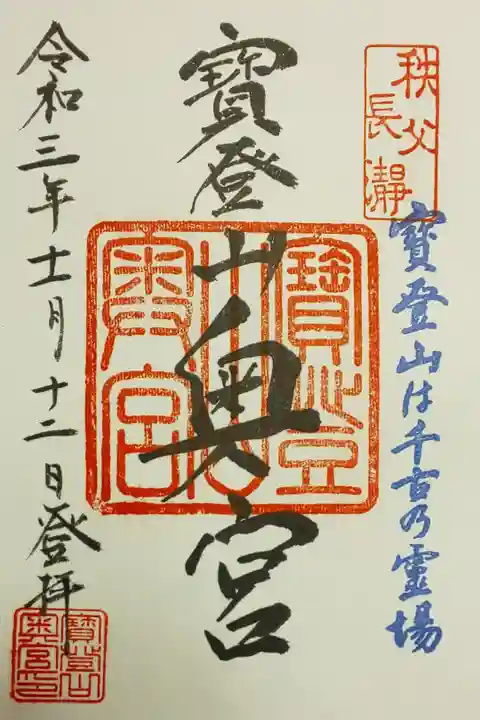 秩父
長瀞
寶登山は千古乃霊場
寶登山奥宮
寶登山奥宮
令和三年十一月十二日登拝
寶登山
奥宮印